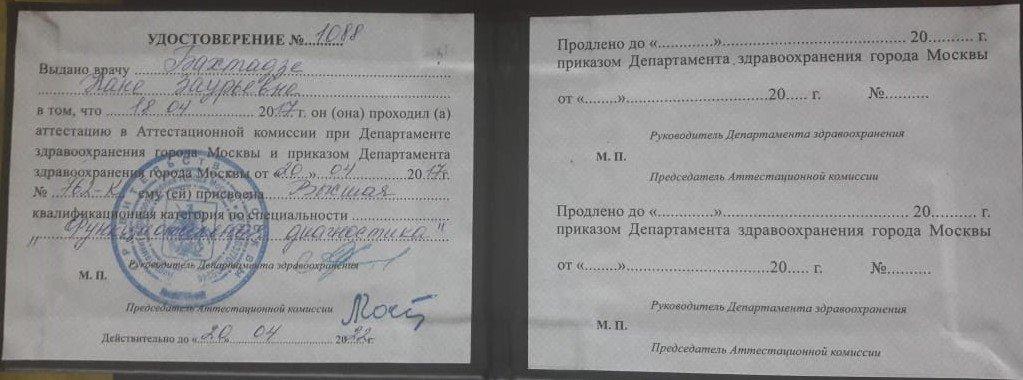 УДОСТОВЕРЕНИЕ № 1088
Выдано врачу Бахтадзе
Нано Зауръевна
в том, что 18 04 2017 г. он (она) проходил (а)
аттестацию в Аттестационной комиссии при Департаменте
здравоохранения города Москвы и приказом Департамента
здравоохранения города Москвы от «20» 04 2017 г.
№ 162-К ему (ей) присвоена Высшая
квалификационная категория по специальности
"Функциональная диагностика"
Руководитель Департамента здравоохранения
М. П.
Председатель Аттестационной комиссии
Действительно до «20» 04 2022 г.
Продлено до «.............» 20.......... г.
приказом Департамента здравоохранения города Москвы
от «........» 20..... г. №..........
Руководитель Департамента здравоохранения
М. П.
Председатель Аттестационной комиссии
Продлено до «.............» 20.......... г.
приказом Департамента здравоохранения города Москвы
от «........» 20..... г. №..........
Руководитель Департамента здравоохранения
М. П.
Председатель Аттестационной комиссии